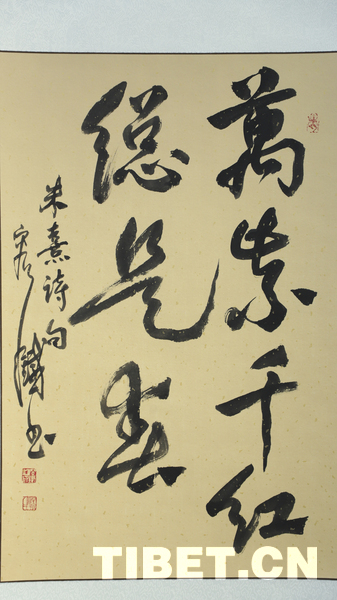 萬紫千红
總是春
朱熹诗句
TIBET.CN